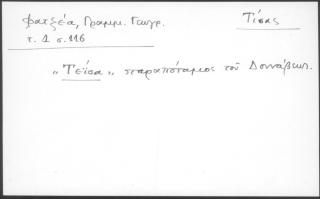 Φατζέα, Γραμμ. Γεωγρ.
Τίσας
τ. Δ σ. 116
"Τεΐσα" παραπόταμος τοῦ Δουνάβεως.